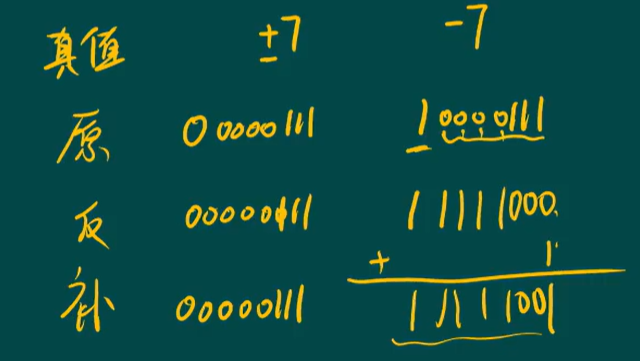 真值 ±7 -7
原 00000111 10000111
反 00000111 11111000
+ 1
补 00000111 11111001